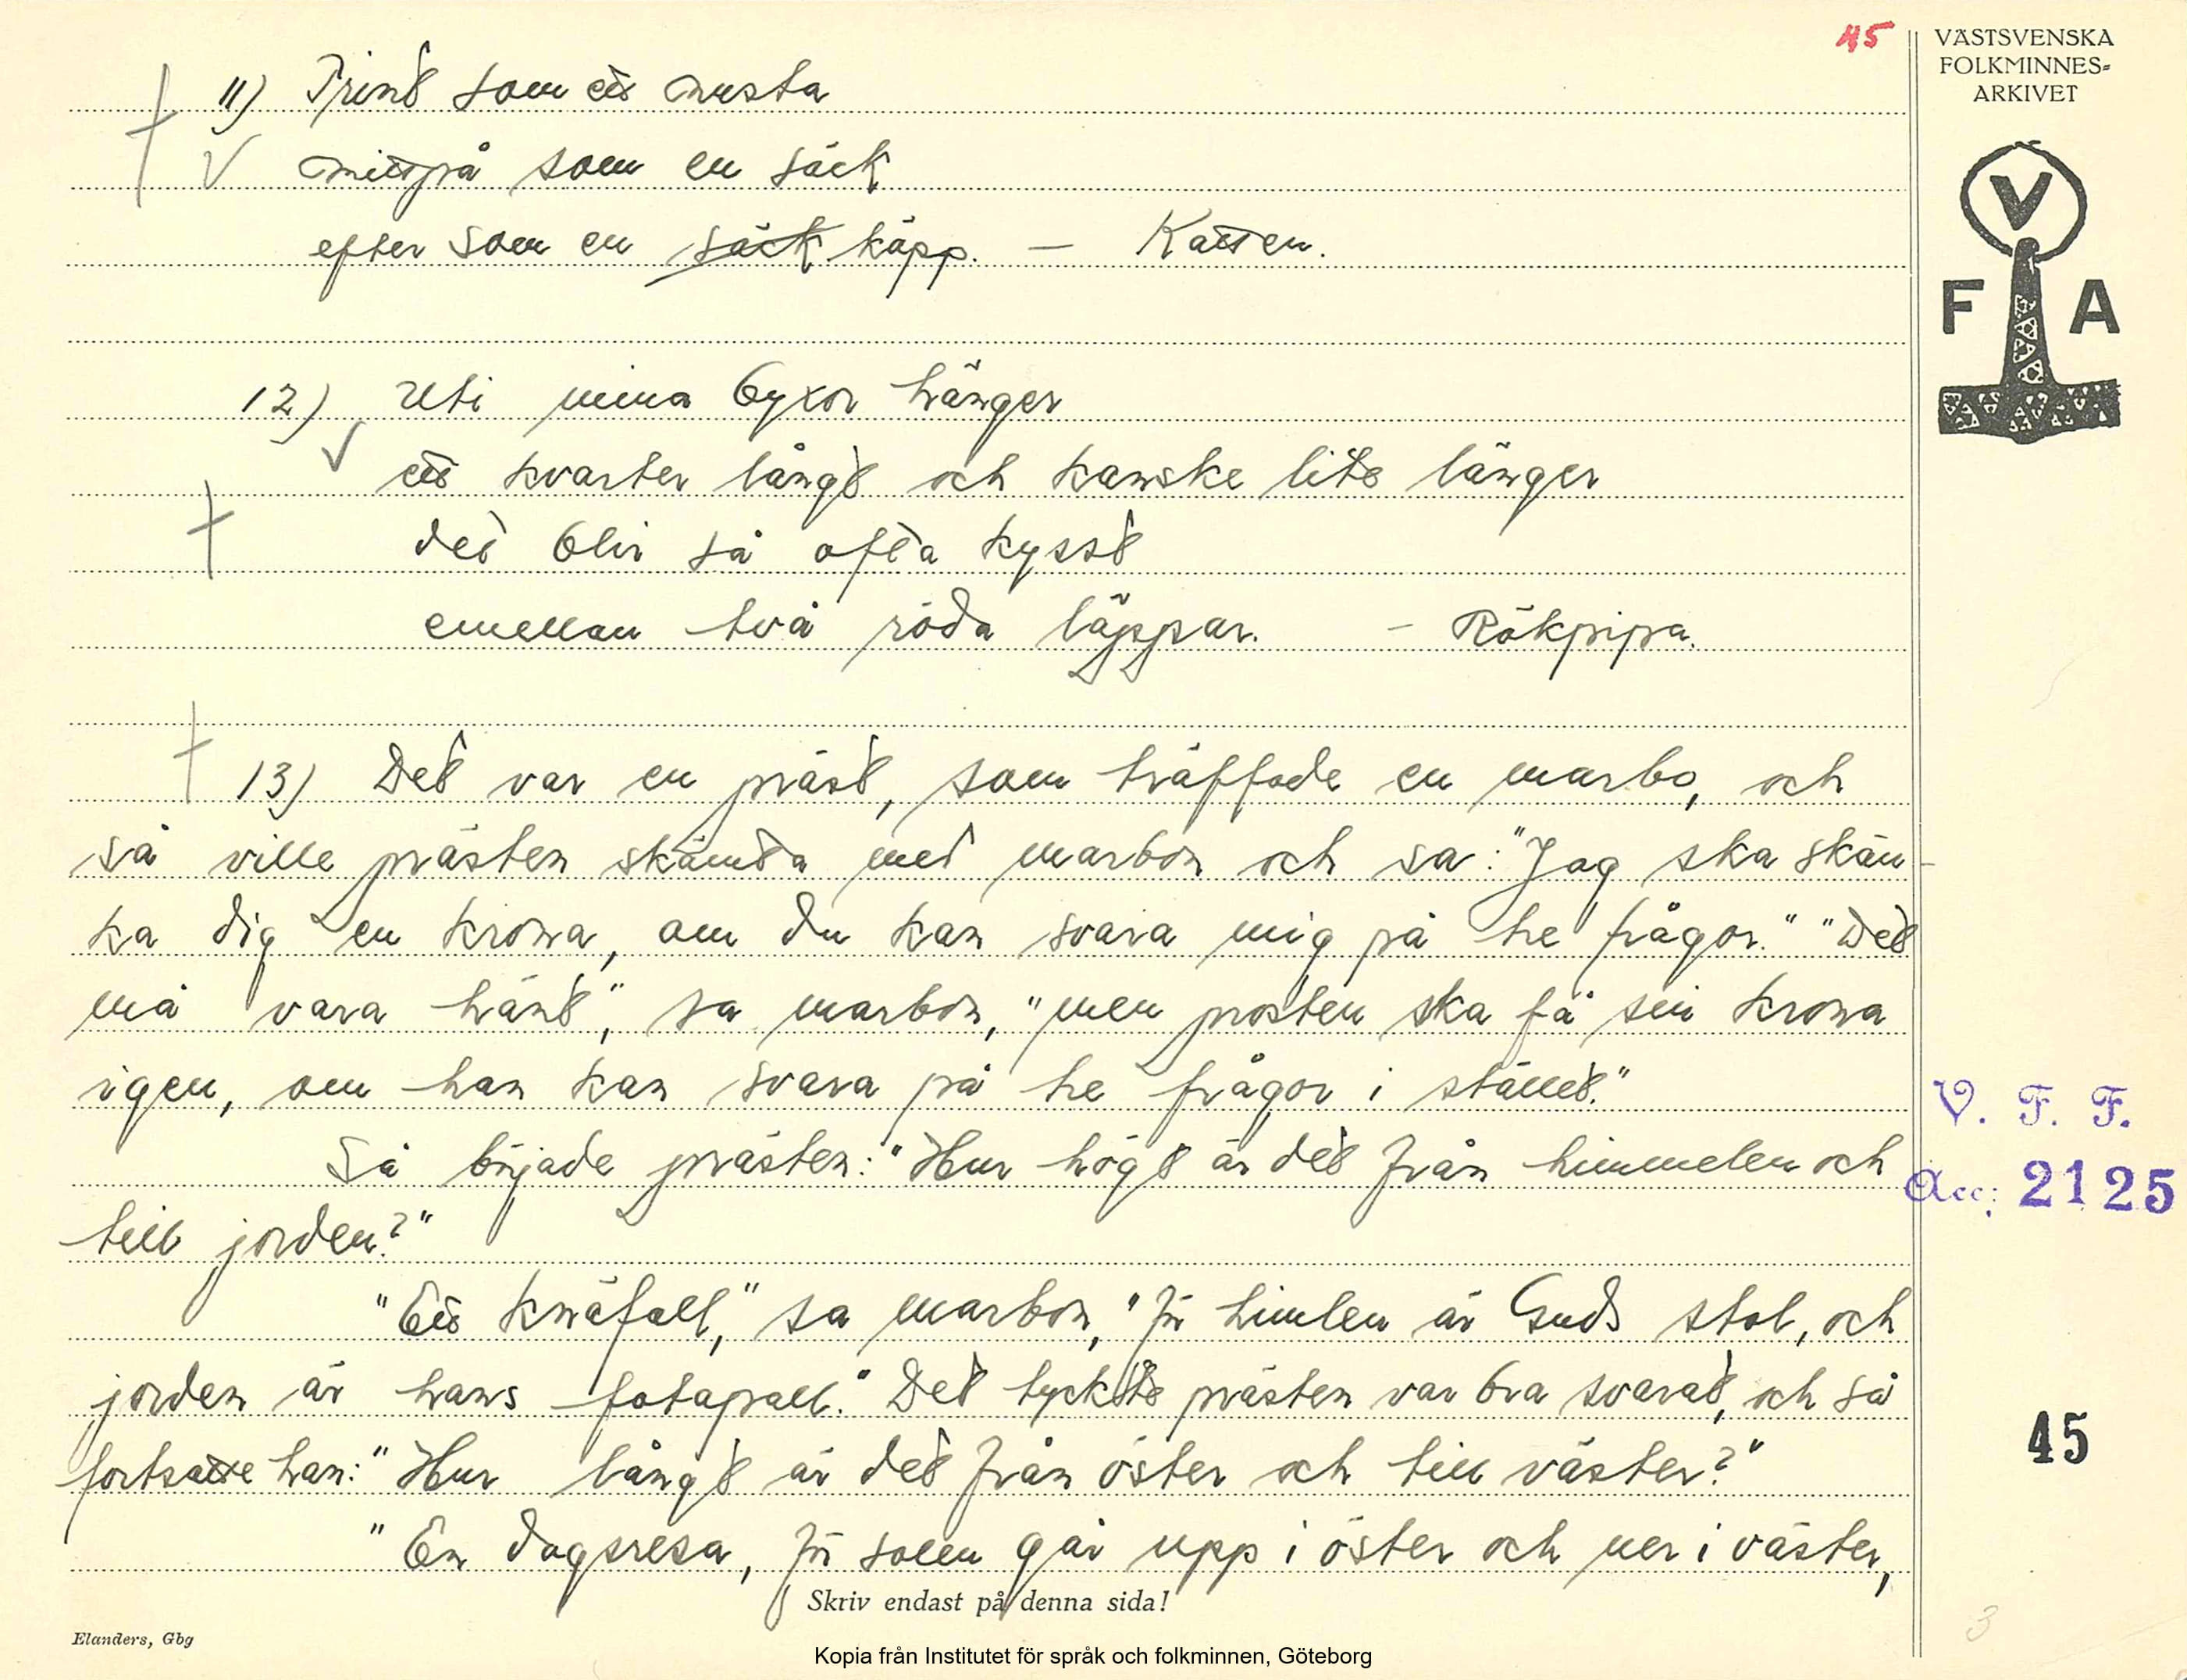 45
VÄSTSVENSKA
FOLKMINNES=
ARKIVET
V
F A
11) Trint som ett nysta
mittpå som en säck
efter som en säck käpp. – Katten.
12) Uti mina byxor hänger
ett kvarter långt och kanske lite länger
det blir så ofta kysst
emellan två röda läppar. – Rökpipa.
13) Det var en präst, som träffade en marbo, och
så ville prästen skämta med marbon och sa: "Jag ska skän-
ka dig en krona, om du kan svara mig på tre frågor." "Det
må vara hänt", sa marbon, "men prosten ska få sin krona
igen, om han kan svara på tre frågor i stället."
Så började prästen: "Hur högt är det från himmelen och
till jorden?"
"Ett knäfall," sa marbon, "för himlen är Guds stol, och
jorden är hans fotapall." Det tyckte prästen var bra svarat, och så
fortsatte han: "Hur långt är det från öster och till väster?"
"En dagsresa, för solen går upp i öster och ner i väster,
V. F. F.
Acc: 2125
45
3
Skriv endast på denna sida!
Elanders, Gbg
Kopia från Institutet för språk och folkminnen, Göteborg